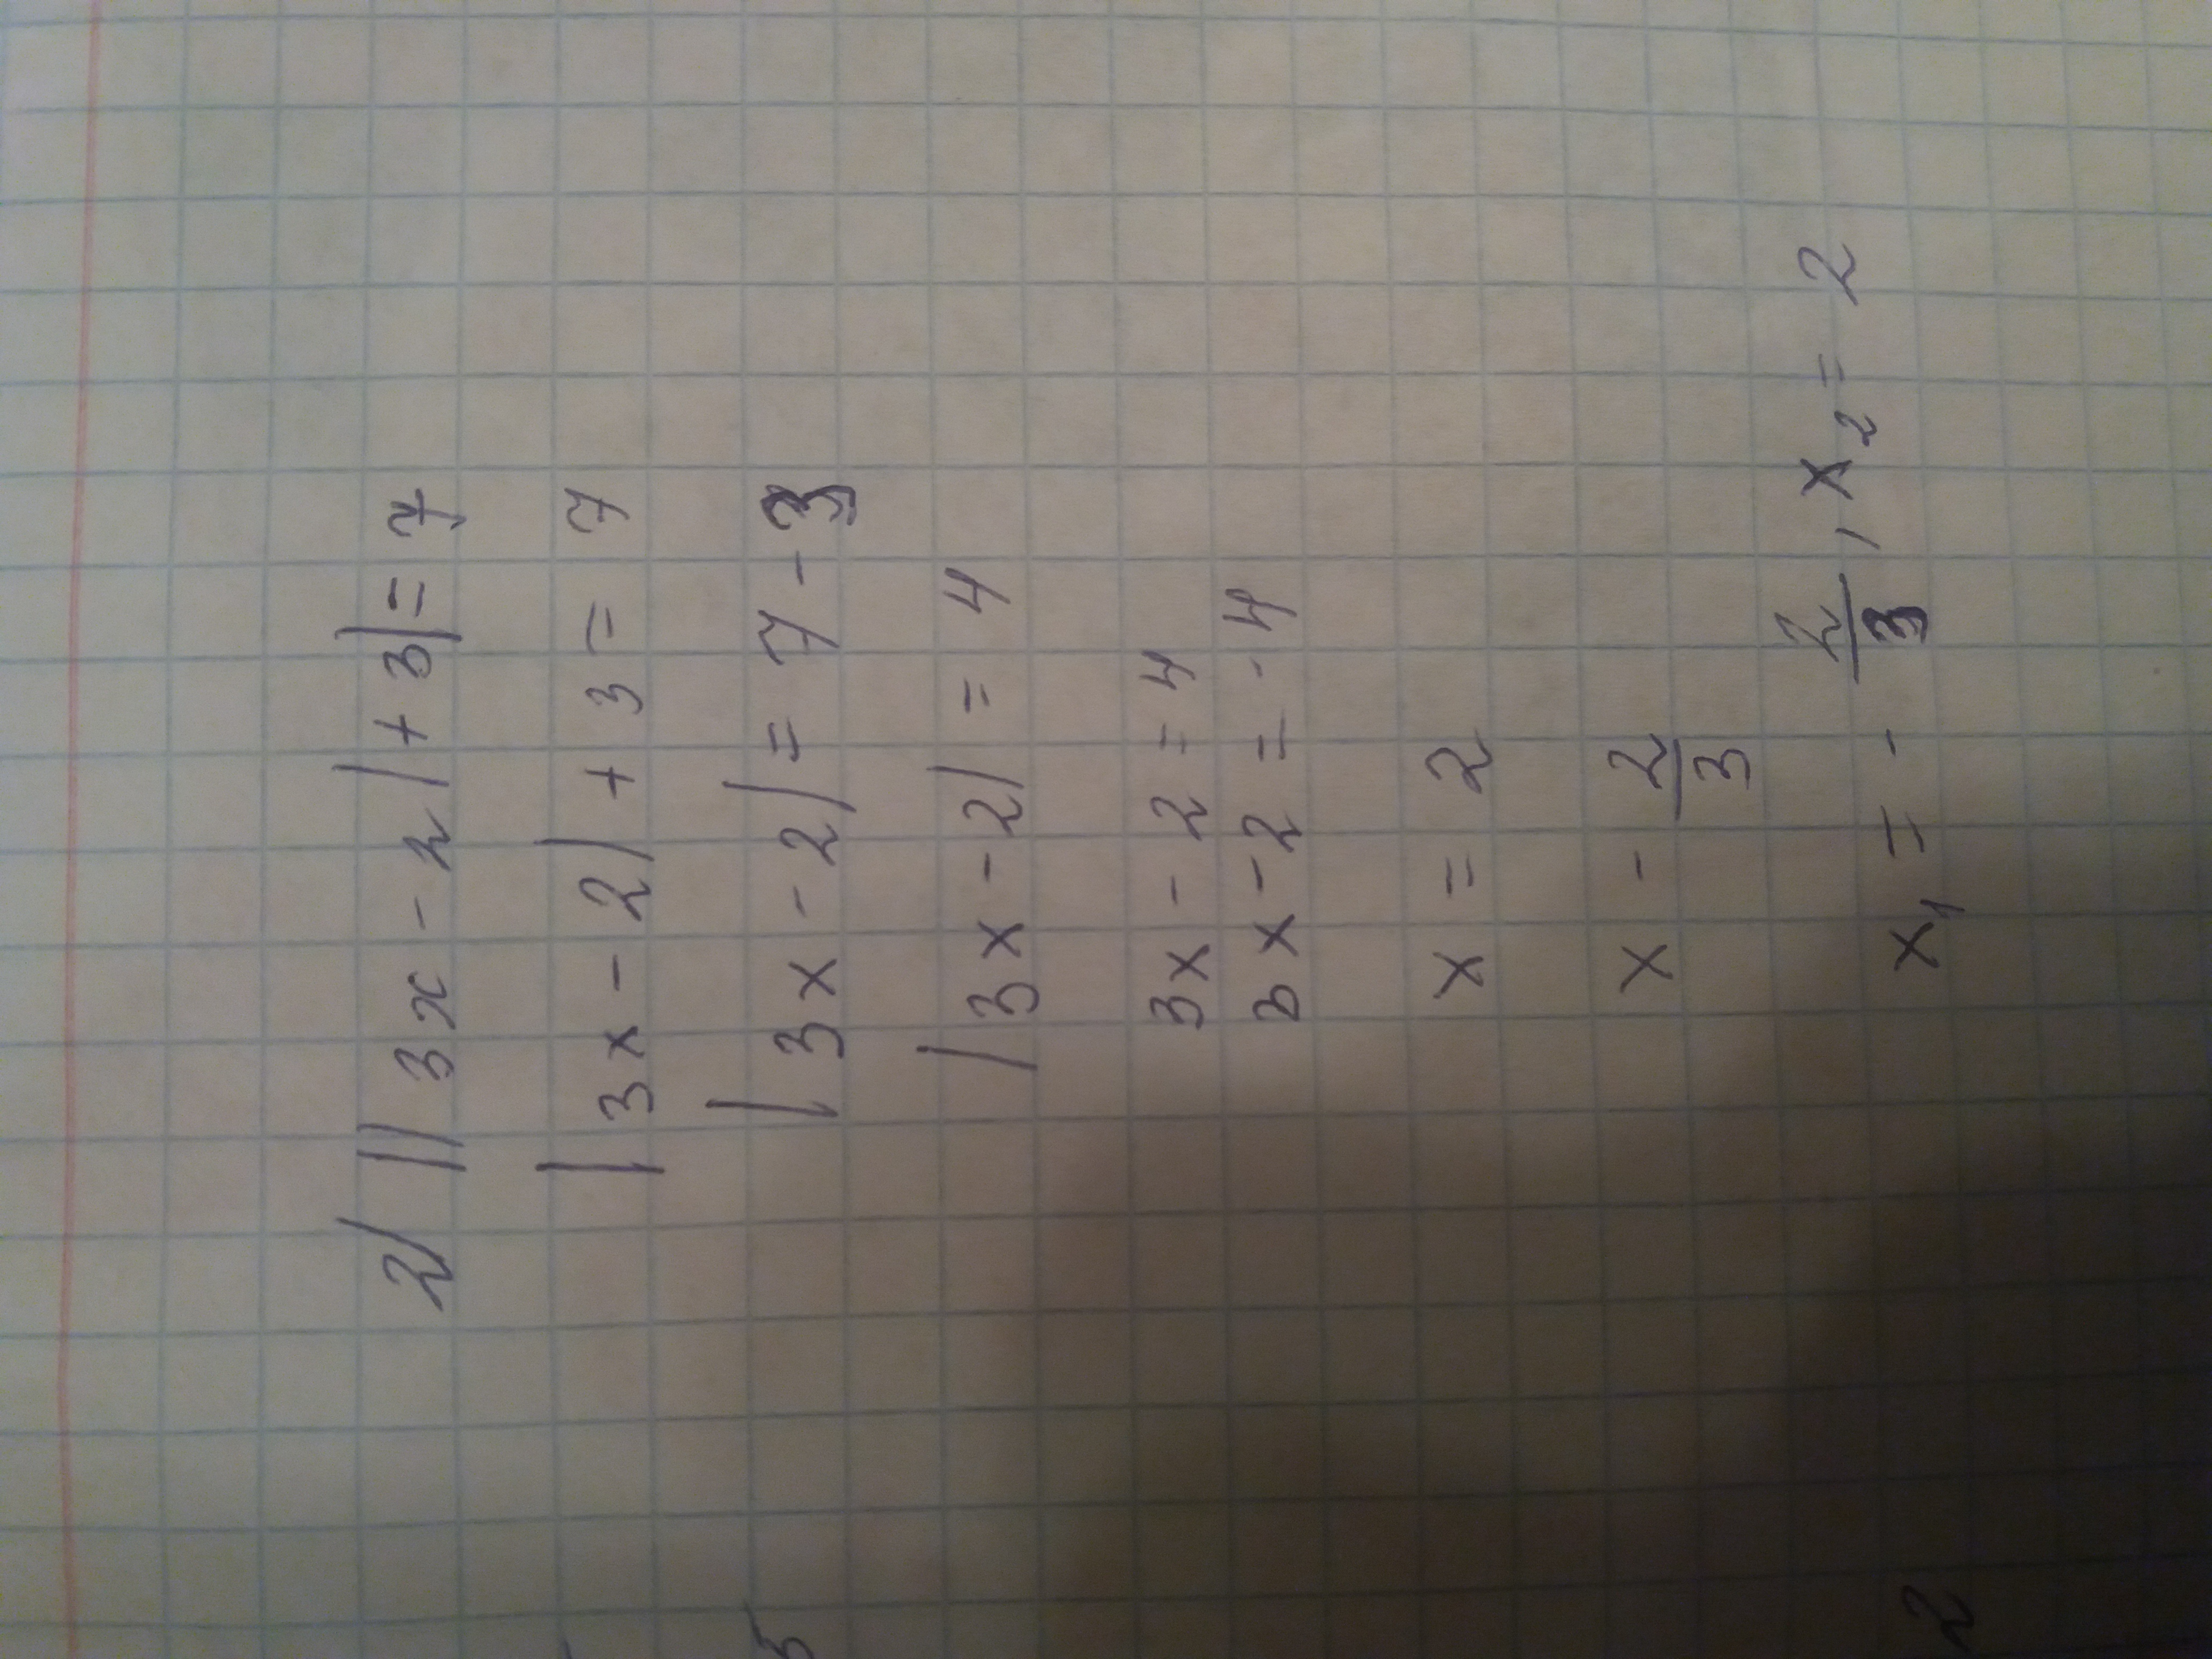 2) ||3x-2|+3|=7
|3x-2|+3=7
|3x-2|=7-3
|3x-2|=4
3x-2=4
3x-2=-4
x=2
x-2/3
x₁=-2/3, x₂=2
5
2